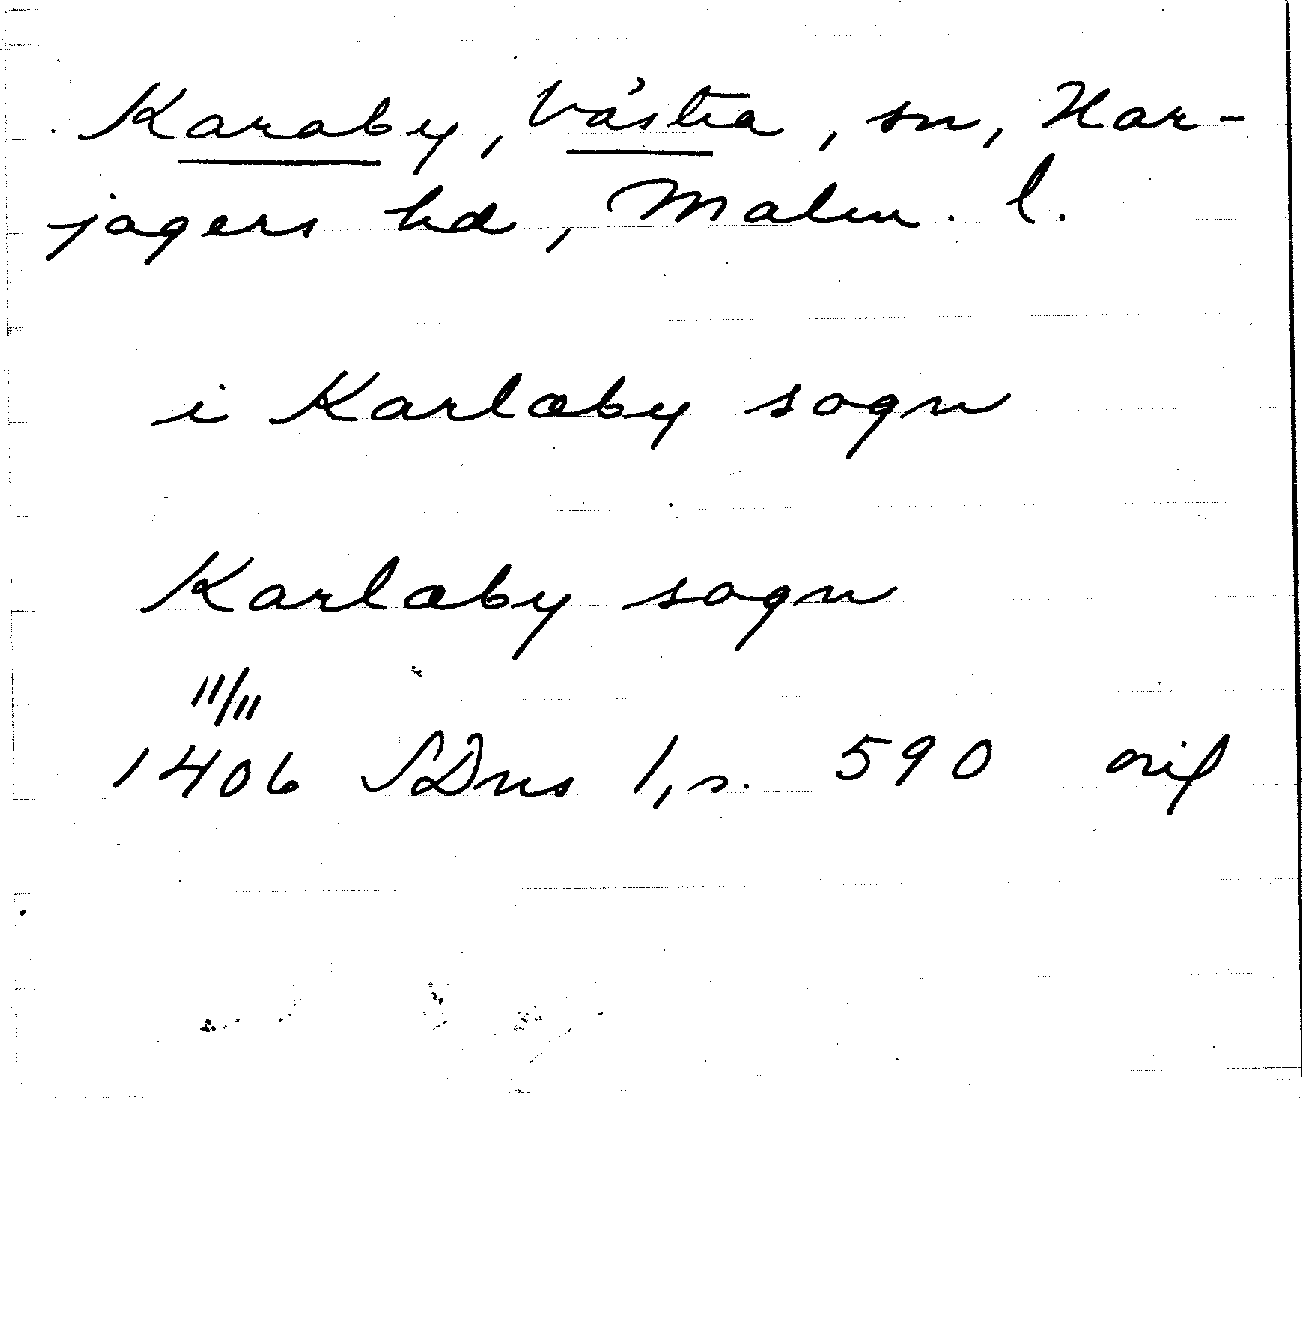 Karaby, Västra, sn, Har-
jagers hd, Malm. l.
i Karlæby sogn
Karlæby sogn
11/11
1406 SDns 1, s. 590 orig